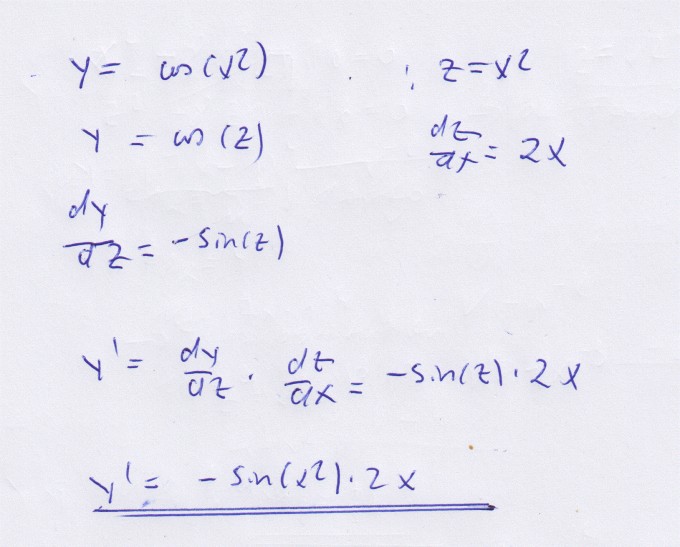 y = cos(x²) ; z = x²
y = cos(z) dz/dx = 2x
dy/dz = -sin(z)
y' = dy/dz · dz/dx = -sin(z) · 2x
y' = -sin(x²) · 2x